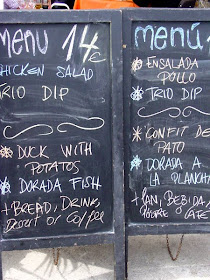 Menu 14€
CHICKEN SALAD
TRIO DIP
DUCK WITH
POTATOS
DORADA FISH
+ BREAD, DRINK
Desert or Coffee
menú 1
ENSALADA
POLLO
TRIO DIP
CONFIT DE
PATO
DORADA A
LA PLANCHA
+ PAN, BEBIDA